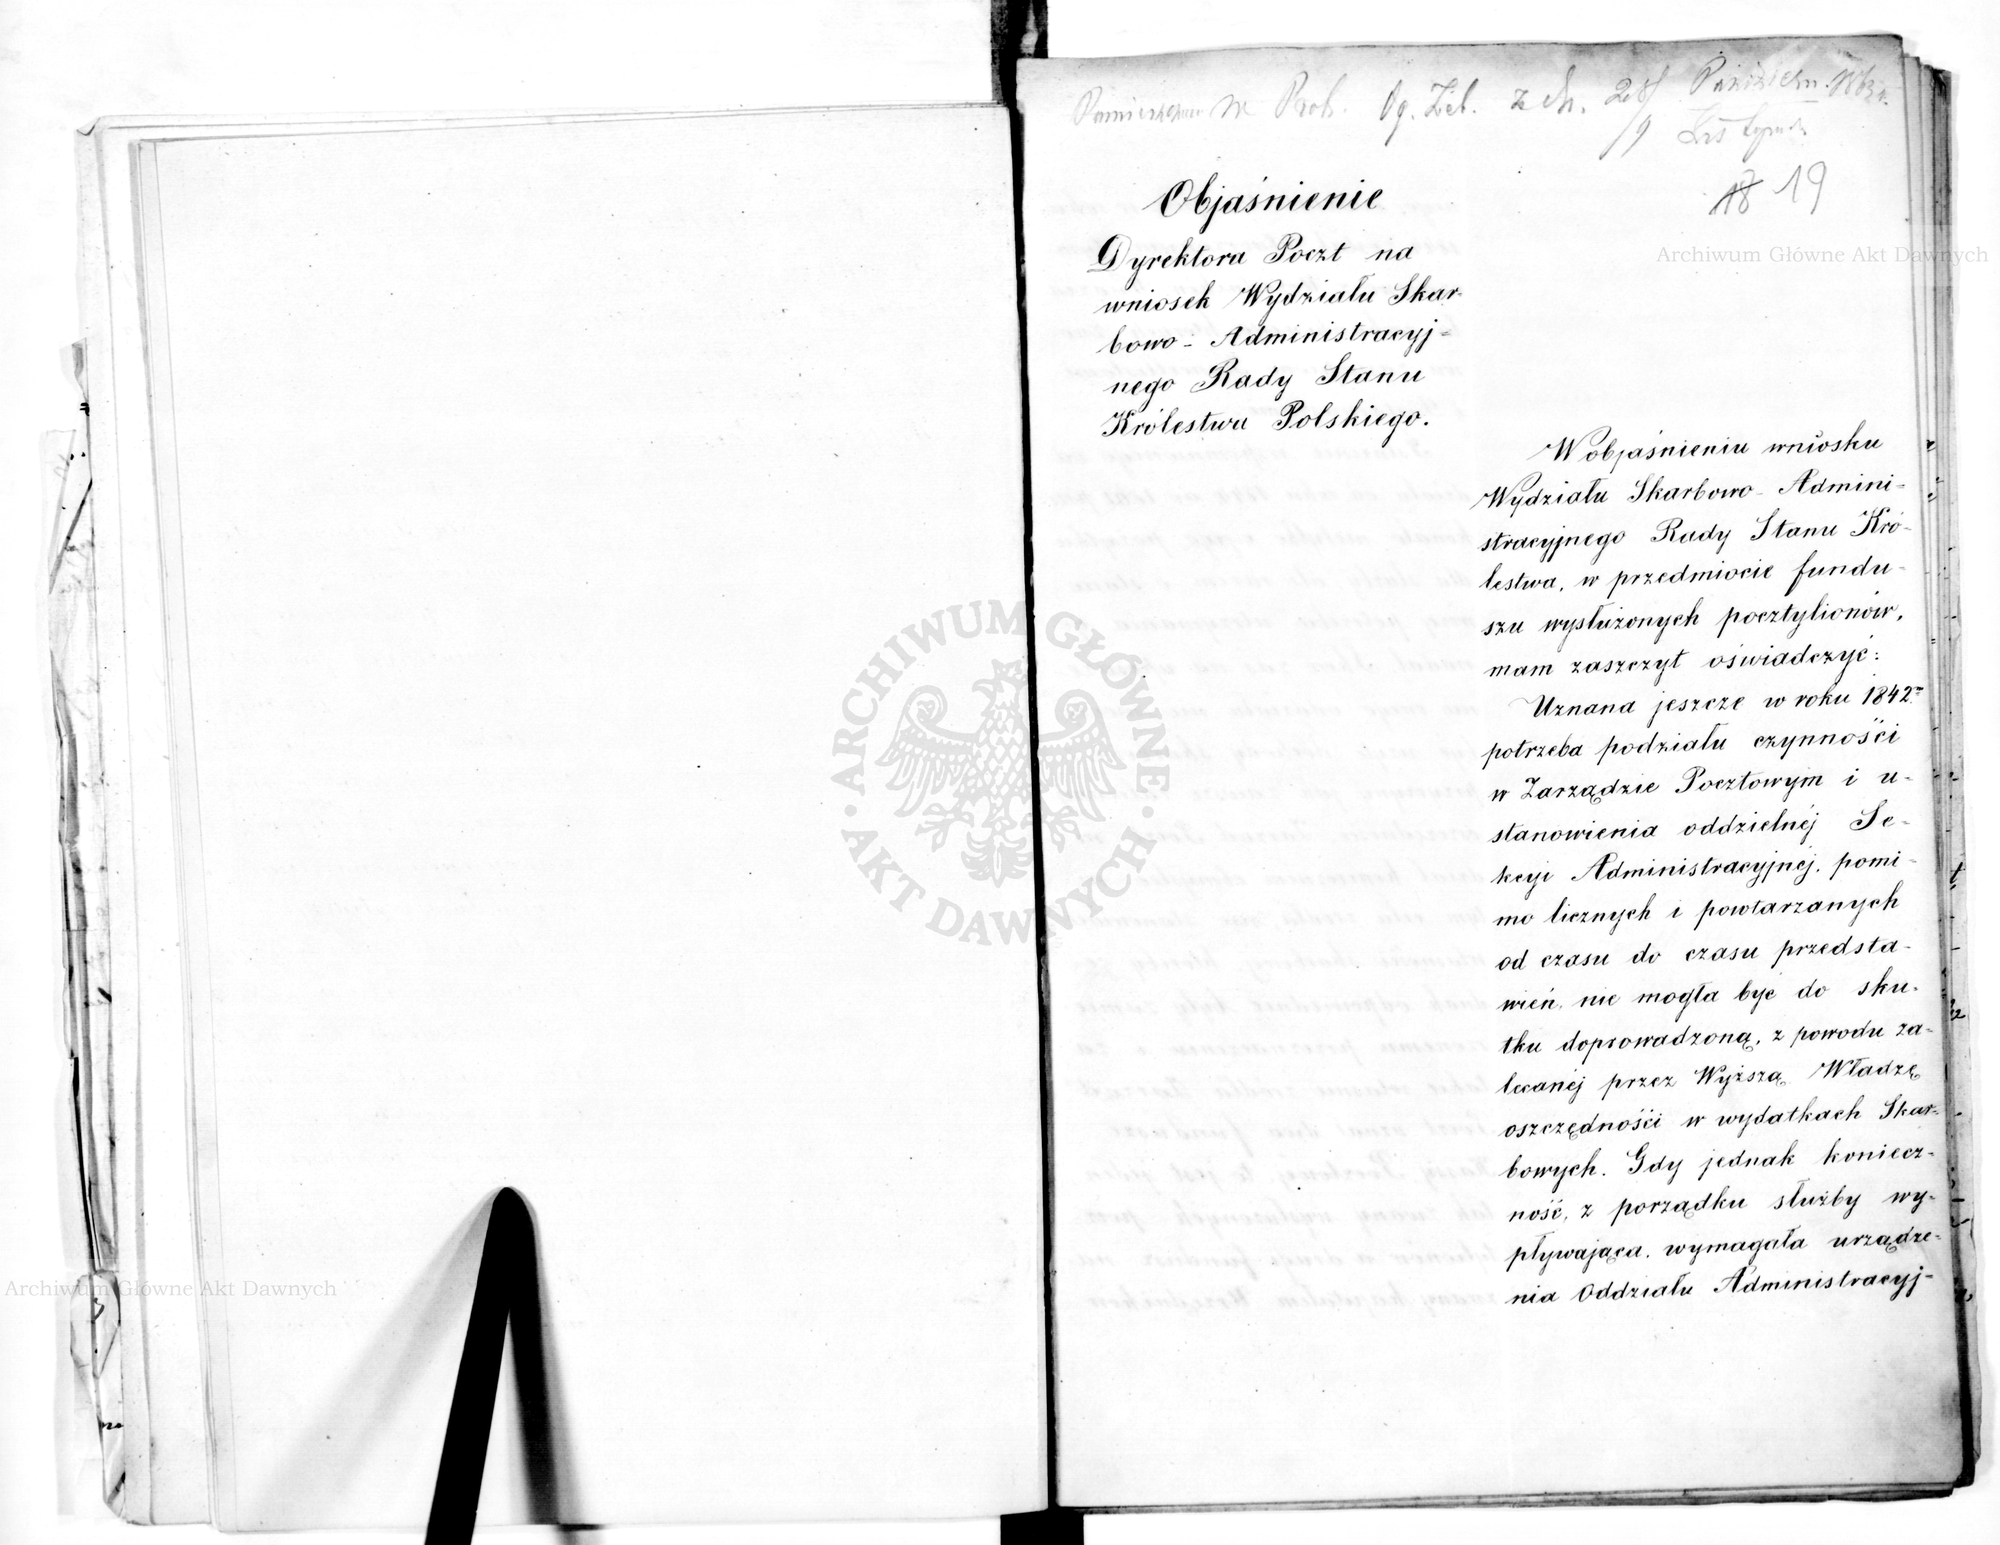 w Prot. Og. Zeb. z dn. 28/9 Paździer.
Listopada
18 19
Objaśnienie
Dyrektora Poczt na
wniosek Wydziału Skar-
bowo-Administracyj-
nego Rady Stanu
Królestwa Polskiego.
W objaśnieniu wniosku
Wydziału Skarbowo-Admini-
stracyjnego Rady Stanu Kró-
lestwa, w przedmiocie fundu-
szu wysłużonych pocztylionów,
mam zaszczyt oświadczyć:
Uznana jeszcze w roku 1842m
potrzeba podziału czynności
w Zarządzie Pocztowym i u-
stanowienia oddzielnéj Se-
kcyi Administracyjnéj, pomi-
mo licznych i powtarzanych
od czasu do czasu przedsta-
wień, nie mogła być do sku-
tku doprowadzoną, z powodu za-
lecanéj przez Wyższą Władzę
oszczędności w wydatkach Skar-
bowych. Gdy jednak koniecz-
ność, z porządku służby wy-
pływająca, wymagała urządze-
nia Oddziału Administracyj-
Archiwum Główne Akt Dawnych
Archiwum Główne Akt Dawnych
· ARCHIWUM GŁÓWNE · AKT DAWNYCH